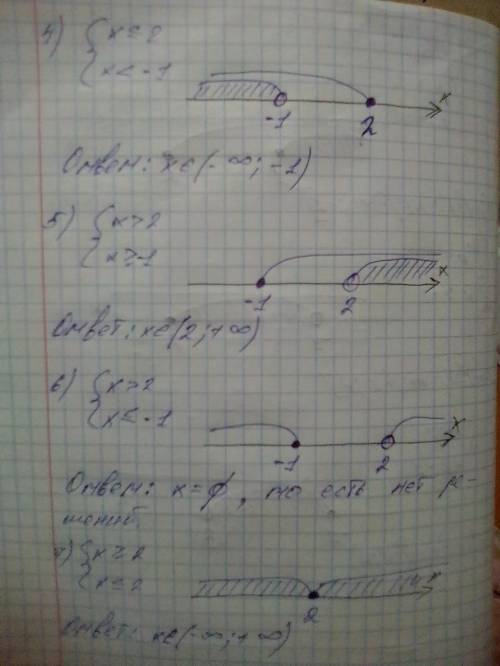 4) { x ≤ 2
x < -1
-1 2 x
Ответ: x∈(-∞; -1)
5) { x > 2
x ≥ -1
-1 2 x
Ответ: x∈(2; +∞)
6) { x > 2
x ≤ -1
-1 2 x
Ответ: x = ∅, то есть нет ре-
шений
7) { x ≥ 2
x ≤ 2
2 x
Ответ: x∈(-∞; +∞)